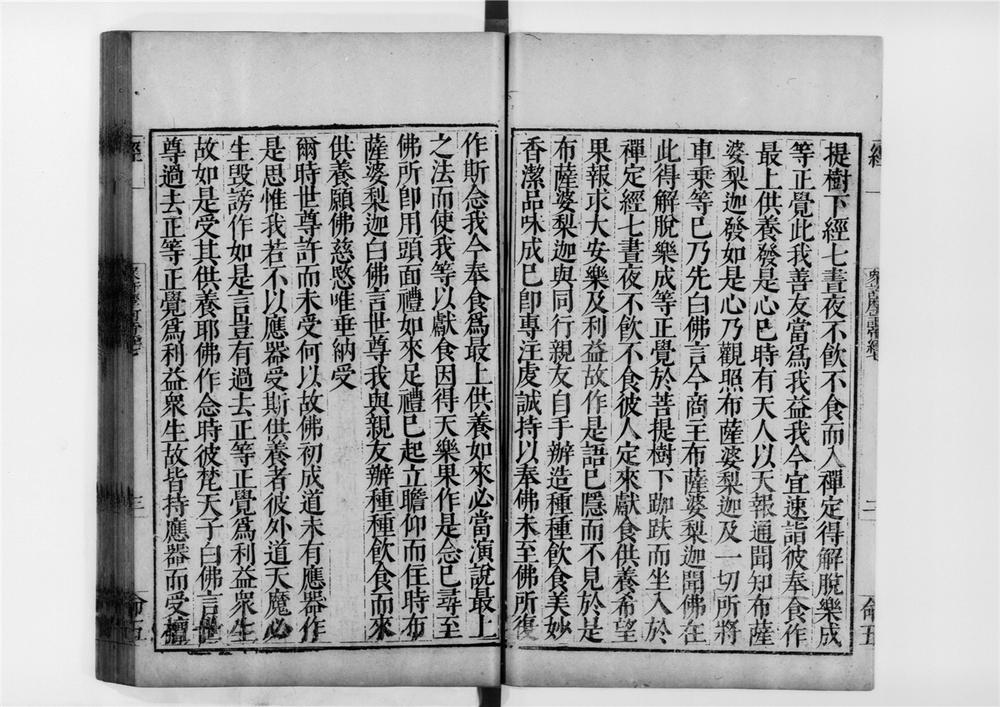 提樹下經七晝夜不飲不食而入禪定得解脫樂成
等正覺此我善友當爲我益我今宜速詣彼奉食作
最上供養發是心已時有天人以天報通聞知布薩
婆梨迦發如是心乃觀照布薩婆梨迦及一切所將
車乗等已乃先白佛言今商主布薩婆梨迦聞佛在
此得解脫樂成等正覺於菩提樹下跏趺而坐入於
禪定經七晝夜不飲不食彼人定來獻食供養希望
果報求大安樂及利益故作是語已隱而不見於是
布薩婆梨迦與同行親友自手辦造種種飲食美妙
香潔品味成已卽專注虔誠持以奉佛未至佛所復
作斯念我今奉食爲最上供養如來必當演說最上
之法而使我等以獻食因得天樂果作是念已尋至
佛所卽用頭面禮如來足禮已起立瞻仰而住時布
薩婆梨迦白佛言世尊我與親友辦種種飲食而來
供養願佛慈愍唯垂納受
爾時世尊許而未受何以故佛初成道未有應器作
是思惟我若不以應器受斯供養者彼外道天魔必
生毀謗作如是言豈有過去正等正覺爲利益衆生
故如是受其供養耶佛作念時彼梵天子白佛言世
尊過去正等正覺爲利益衆生故皆持應器而受檀